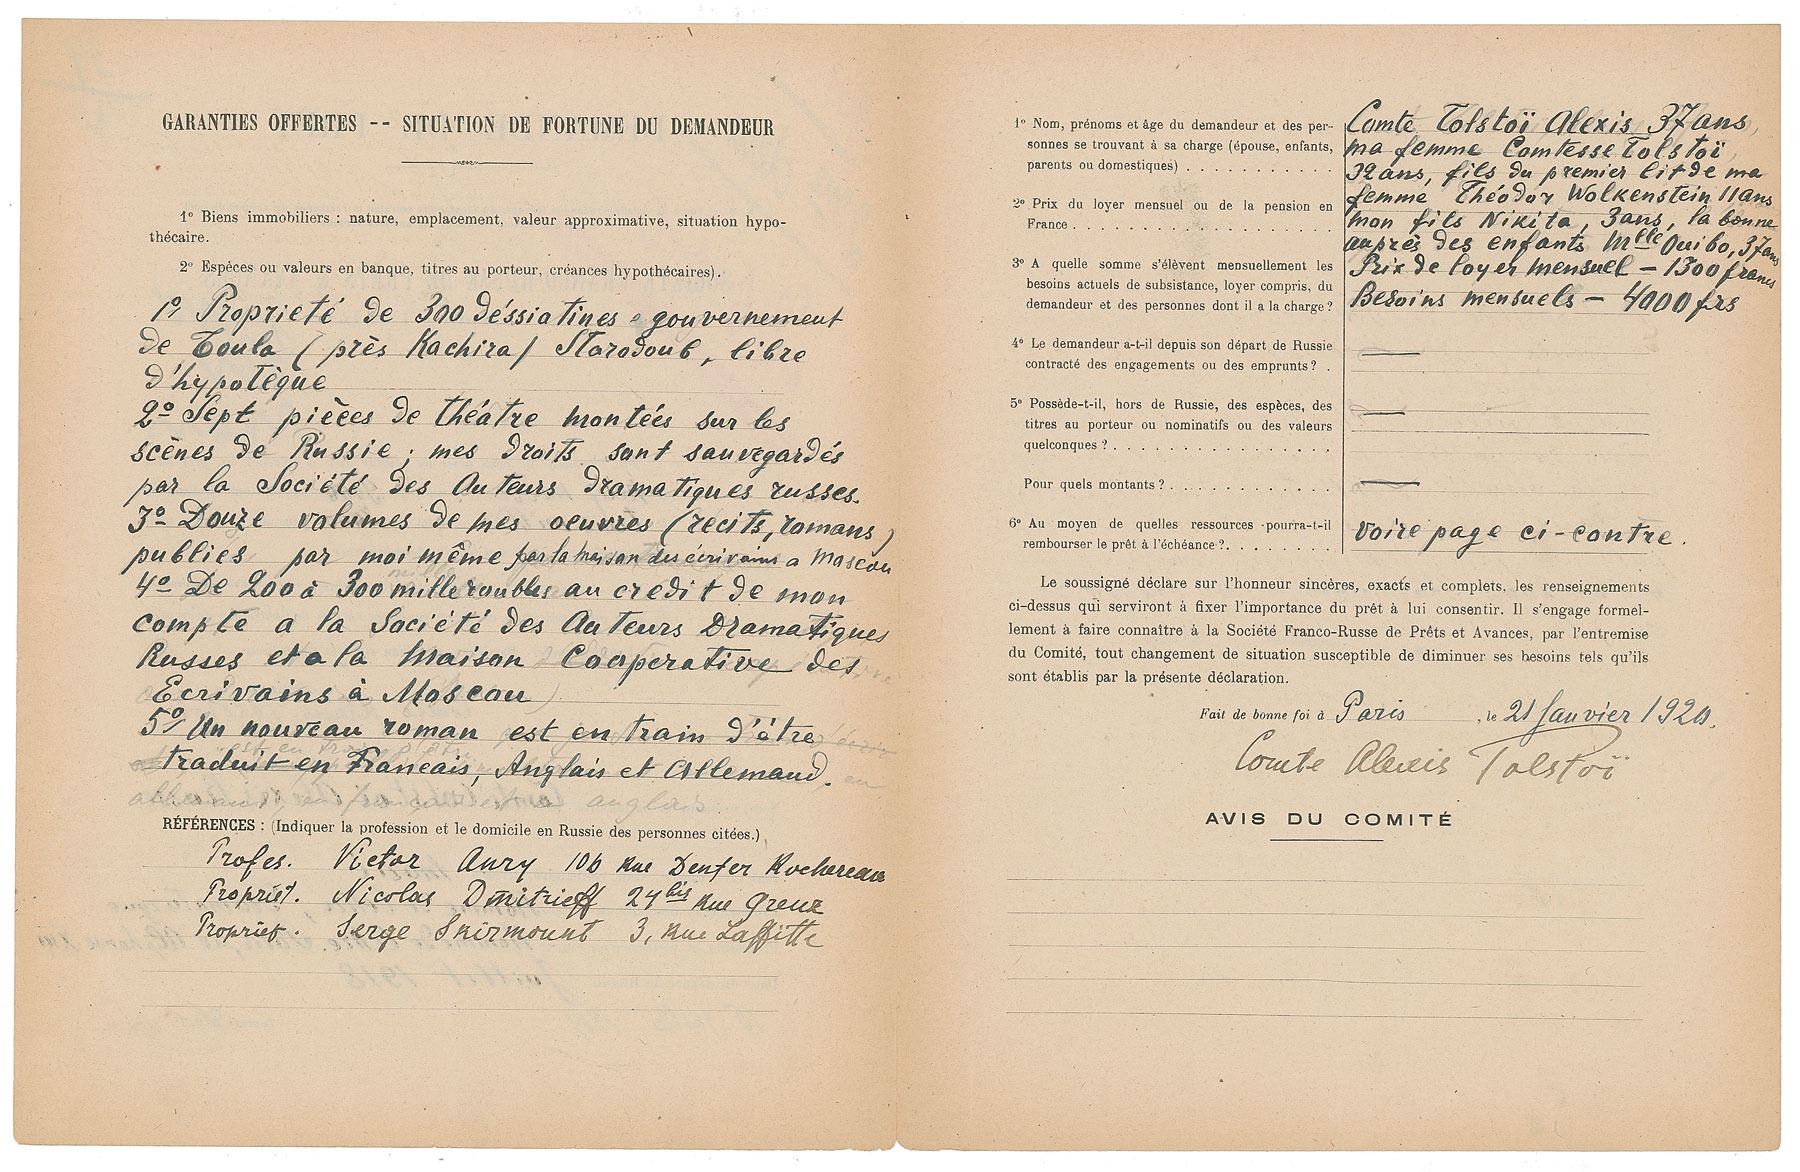 GARANTIES OFFERTES -- SITUATION DE FORTUNE DU DEMANDEUR
1° Biens immobiliers : nature, emplacement, valeur approximative, situation hypo-
thécaire.
2° Espèces ou valeurs en banque, titres au porteur, créances hypothécaires).
1°, Proprieté de 300 déssiatines gouvernement
de Toula (près Kachira) Starodoub, libre
d'hypotèque
2° Sept pièces de théatre montées sur les
scènes de Russie ; mes droits sont sauvegardés
par la Société des Auteurs dramatiques russes.
3° Douze volumes de mes oeuvres (recits, romans)
publies par moi même par la maison des écrivains a Moscou
4° De 200 à 300 mille roubles au credit de mon
compte a la Société des Auteurs Dramatiques
Russes et a la Maison Cooperative des
Ecrivains à Moscou
5°, Un nouveau roman est en train d'être
traduit en Francais, Anglais et Allemand.
allemand, en français et anglais
RÉFÉRENCES : (Indiquer la profession et le domicile en Russie des personnes citées.)
Profes. Victor Anry 106 Rue Denfer Rochereau
Propriét. Nicolas Dmitrieff 24 bis rue Greuz
Propriet. Serge Skirmount 3, Rue Laffitte
1° Nom, prénoms et âge du demandeur et des per-
sonnes se trouvant à sa charge (épouse, enfants,
parents ou domestiques) . . . . . . . . . . .
Comte Tolstoï Alexis 37 ans,
ma femme Comtesse Tolstoï,
32 ans, fils du premier lit de ma
femme Théodor Wolkenstein 11 ans
mon fils Nikita, 3 ans, la bonne
auprès des enfants Mlle Ouibo, 37 ans
2° Prix du loyer mensuel ou de la pension en
France . . . . . . . . . . . . . . . . . . .
Prix de loyer mensuel — 1300 francs
3° A quelle somme s'élèvent mensuellement les
besoins actuels de subsistance, loyer compris, du
demandeur et des personnes dont il a la charge ?
Besoins mensuels — 4000 frs
4° Le demandeur a-t-il depuis son départ de Russie
contracté des engagements ou des emprunts ? .
5° Possède-t-il, hors de Russie, des espèces, des
titres au porteur ou nominatifs ou des valeurs
quelconques ? . . . . . . . . . . . . . . . .
Pour quels montants ? . . . . . . . . . . . .
6° Au moyen de quelles ressources pourra-t-il
rembourser le prêt à l'échéance ?. . . . . . .
voire page ci-contre.
Le soussigné déclare sur l'honneur sincères, exacts et complets, les renseignements
ci-dessus qui serviront à fixer l'importance du prêt à lui consentir. Il s'engage formel-
lement à faire connaître à la Société Franco-Russe de Prêts et Avances, par l'entremise
du Comité, tout changement de situation susceptible de diminuer ses besoins tels qu'ils
sont établis par la présente déclaration.
Fait de bonne foi à Paris , le 21 Janvier 1920.
Comte Alexis Tolstoï
AVIS DU COMITÉ